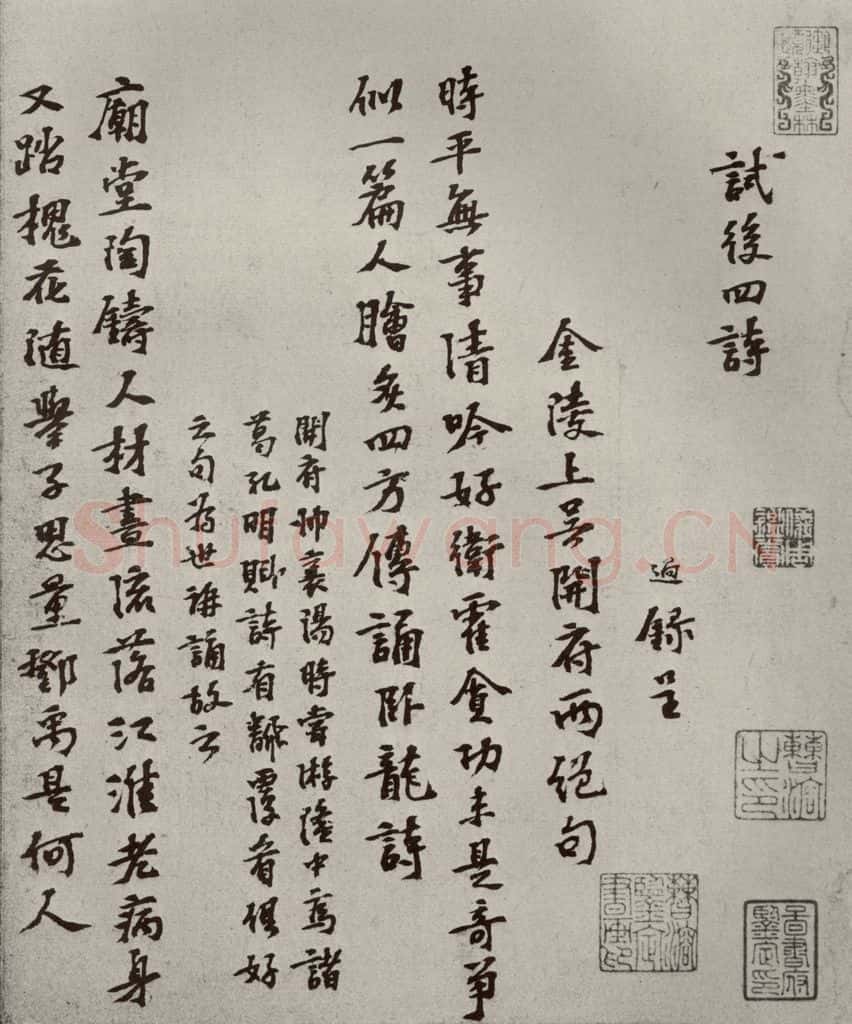 試後四詩
錄呈
金陵上吳開府兩絕句
時平無事清吟好衛霍貪功未是奇爭
似一篇人膾炙四方傳誦卧龍詩
開府帥襄陽時嘗游隆中為諸
葛孔明賦詩有翻覆看俱好
之句為世講誦故云
廟堂陶鑄人材盡流落江淮老病身
又踏槐花隨舉子思量鄧禹是何人
Shufawang.CN